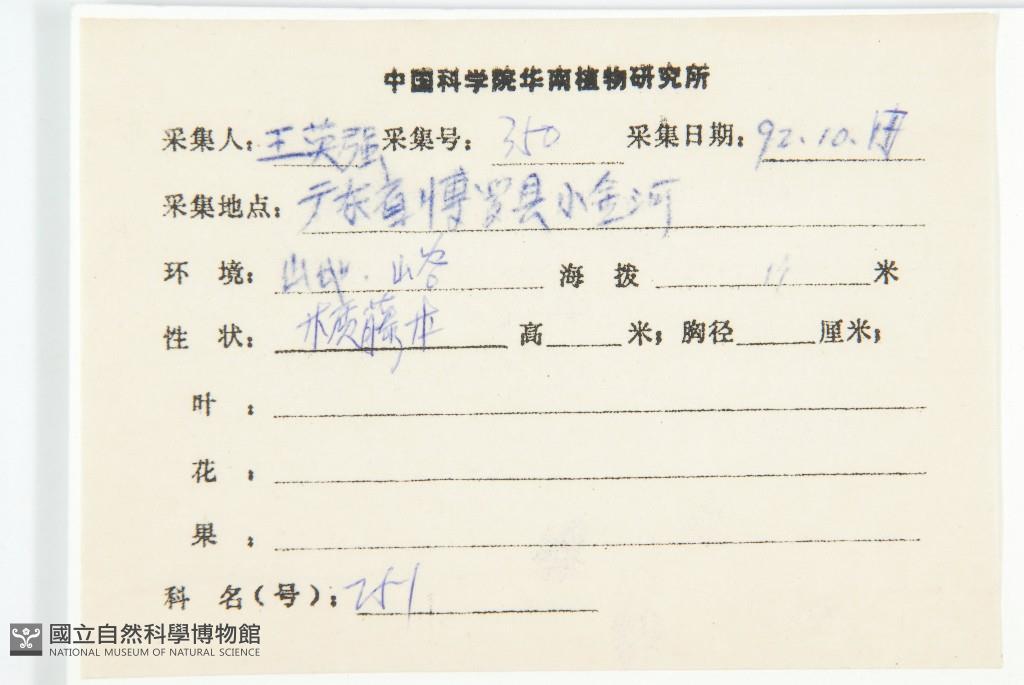 中国科学院华南植物研究所
采集人：王英强 采集号：350 采集日期：92.10.
采集地点：广东省博罗县小金河
环 境：山地．山谷 海 拨 米
性 状：木质藤本 高 米；胸径 厘米；
叶 ：
花 ：
果 ：
科 名（号）：251
國立自然科學博物館
NATIONAL MUSEUM OF NATURAL SCIENCE